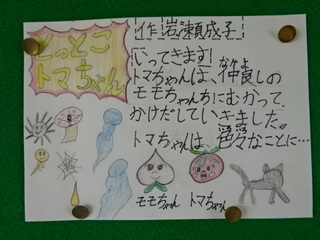 とっとこ
トマちゃん
作 岩瀬成子
いってきます
トマちゃんは、仲良しの
なかよ
モモちゃんちにむかって、
かけだしていきました。
トマちゃんは、色々なことに…
モモちゃん トマちゃん